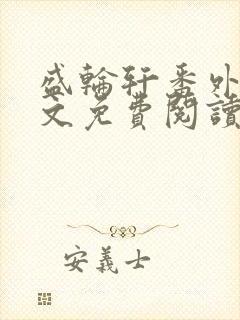 盛輪軒番外
文免費閱讀
安義士